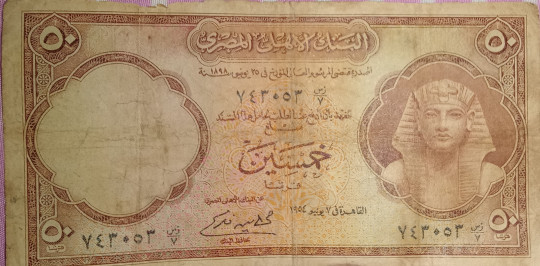 ٥٠ البنك الأهلي المصري ٥٠
المحدد بمقتضى المرسوم العالي المؤرخ في ٢٥ يونيو سنة ١٨٩٨
٧٤٣٠٥٣ زس/٧
نتعهد بأن ندفع عند الطلب لحامل هذا السند
مبلغ
خمسين
قرشا
القاهرة في ٧ يونيو ١٩٥٤
عن البنك الأهلي المصري
محافظ البنك
٥٠ ٧٤٣٠٥٣ زس/٧
٧٤٣٠٥٣ زس/٧ ٥٠